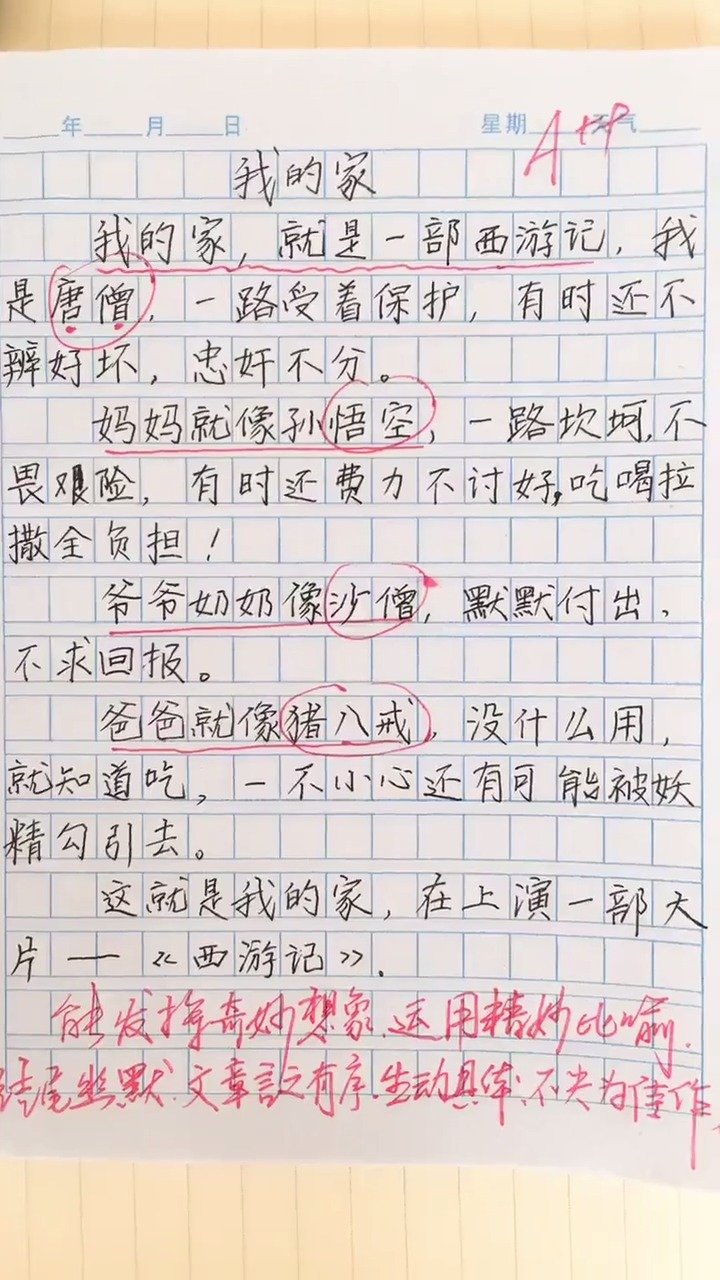 年 月 日 星期 天气
A++
我的家
我的家，就是一部西游记，我
是唐僧，一路受着保护，有时还不
辨好坏，忠奸不分。
妈妈就像孙悟空，一路坎坷，不
畏艰险，有时还费力不讨好，吃喝拉
撒全负担！
爷爷奶奶像沙僧，默默付出，
不求回报。
爸爸就像猪八戒，没什么用，
就知道吃，一不小心还有可能被妖
精勾引去。
这就是我的家，在上演一部大
片——《西游记》.
能发挥奇妙想象.运用精妙比喻.
结尾幽默.文章言之有序.生动具体.不失为佳作.